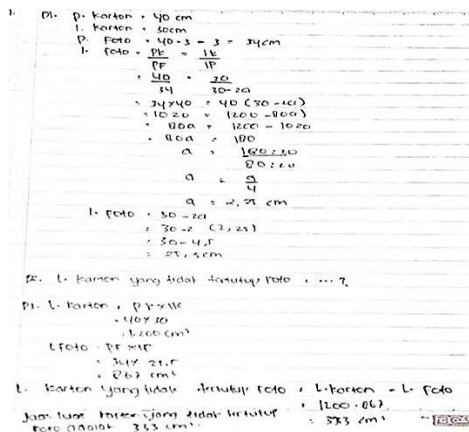 1. D1. p. karton = 40 cm
l. karton = 30cm
P. Foto = 40-3-3 = 34cm
l. Foto = PK/PF = lk/lP
= 40/34 = 30/30-2a
= 34x40 = 40 (30-2a)
= 1020 = 1200-80a)
= 80a = 1200-1020
= 80a = 180
a = 180:20/80:20
a = 9/4
a = 2,25 cm
l. Foto = 30-2a
= 30-2 (2,25)
= 30-4,5
= 25,5cm
L. karton yang tidak tertutup Foto = ...?
L. karton = PK x lK
= 40x30
= 1.200 cm²
L Foto = PF x lF
= 34x 25,5
= 867 cm²
L. Karton yang tidak tertutup Foto = L.karton - L. Foto
= 1200-867
Jadi luas karton yang tidak tertutup = 333 cm²
Foto adalah 333 cm²